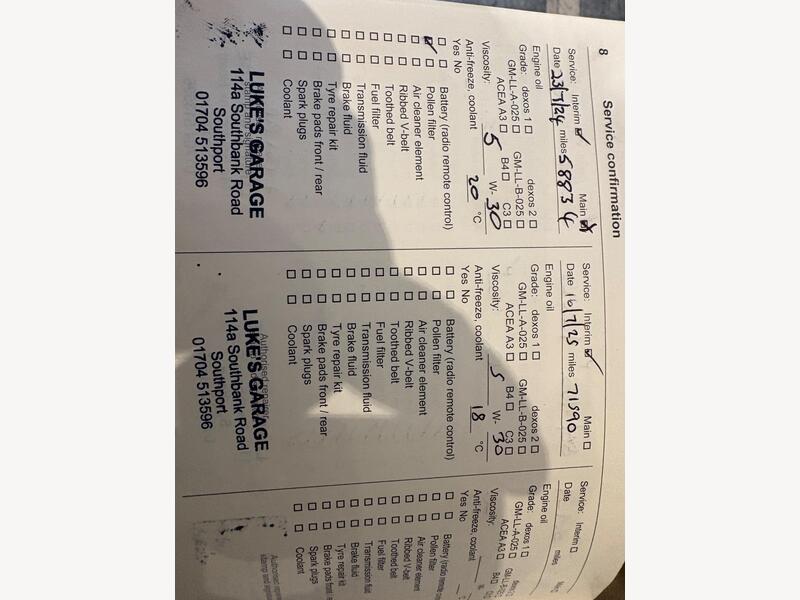 8
Service confirmation
Service: Interim ☑ Main ☒
Date 23/7/24 miles 58834
Engine oil
Grade: dexos 1 ☐ dexos 2 ☐
GM-LL-A-025 ☐ GM-LL-B-025 ☐
ACEA A3 ☐ B4 ☐ C3 ☐
Viscosity: 5 W- 30
Anti-freeze, coolant 20 °C
Yes No
☐ ☐ Battery (radio remote control)
☑ ☐ Pollen filter
☐ ☐ Air cleaner element
☐ ☐ Ribbed V-belt
☐ ☐ Toothed belt
☐ ☐ Fuel filter
☐ ☐ Transmission fluid
☐ ☐ Brake fluid
☐ ☐ Tyre repair kit
☐ ☐ Brake pads front / rear
☐ ☐ Spark plugs
☐ ☐ Coolant
LUKE'S GARAGE
114a Southbank Road
Southport
01704 513596
Service: Interim ☑ Main ☐
Date 16/7/25 miles 71590
Engine oil
Grade: dexos 1 ☐ dexos 2 ☐
GM-LL-A-025 ☐ GM-LL-B-025 ☐
ACEA A3 ☐ B4 ☐ C3 ☐
Viscosity: 5 W- 30
Anti-freeze, coolant 18 °C
Yes No
☐ ☐ Battery (radio remote control)
☐ ☐ Pollen filter
☐ ☐ Air cleaner element
☐ ☐ Ribbed V-belt
☐ ☐ Toothed belt
☐ ☐ Fuel filter
☐ ☐ Transmission fluid
☐ ☐ Brake fluid
☐ ☐ Tyre repair kit
☐ ☐ Brake pads front / rear
☐ ☐ Spark plugs
☐ ☐ Coolant
Authorised repairer
LUKE'S GARAGE
114a Southbank Road
Southport
01704 513596
Service: Interim ☐
Date miles
Engine oil
Grade: dexos 1 ☐
GM-LL-A-025 ☐
ACEA A3 ☐ B4 ☐
Viscosity:
Anti-freeze, coolant
Yes No
☐ ☐ Battery (radio remote
☐ ☐ Pollen filter
☐ ☐ Air cleaner element
☐ ☐ Ribbed V-belt
☐ ☐ Toothed belt
☐ ☐ Fuel filter
☐ ☐ Transmission fluid
☐ ☐ Brake fluid
☐ ☐ Tyre repair kit
☐ ☐ Brake pads front /
☐ ☐ Spark plugs
☐ ☐ Coolant
Authorised
stamp and